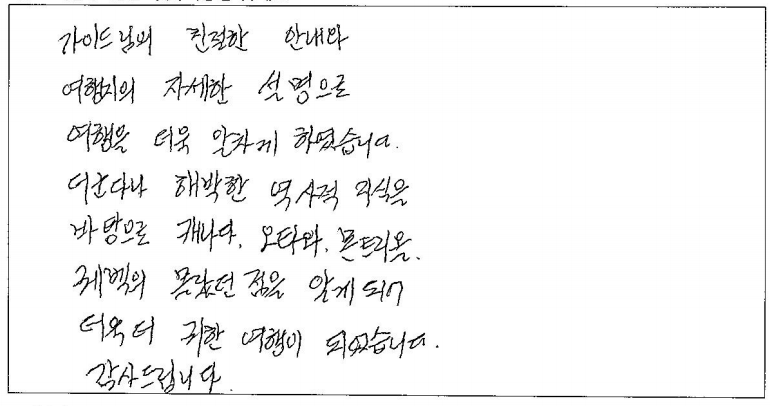 가이드님의 친절한 안내와
여행지의 자세한 설명으로
여행을 더욱 알차게 하였습니다.
더군다나 해박한 역사적 지식을
바탕으로 캐나다, 오타와, 몬트리올,
퀘벡의 몰랐던 점을 알게 되어
더욱 더 귀한 여행이 되었습니다.
감사드립니다.